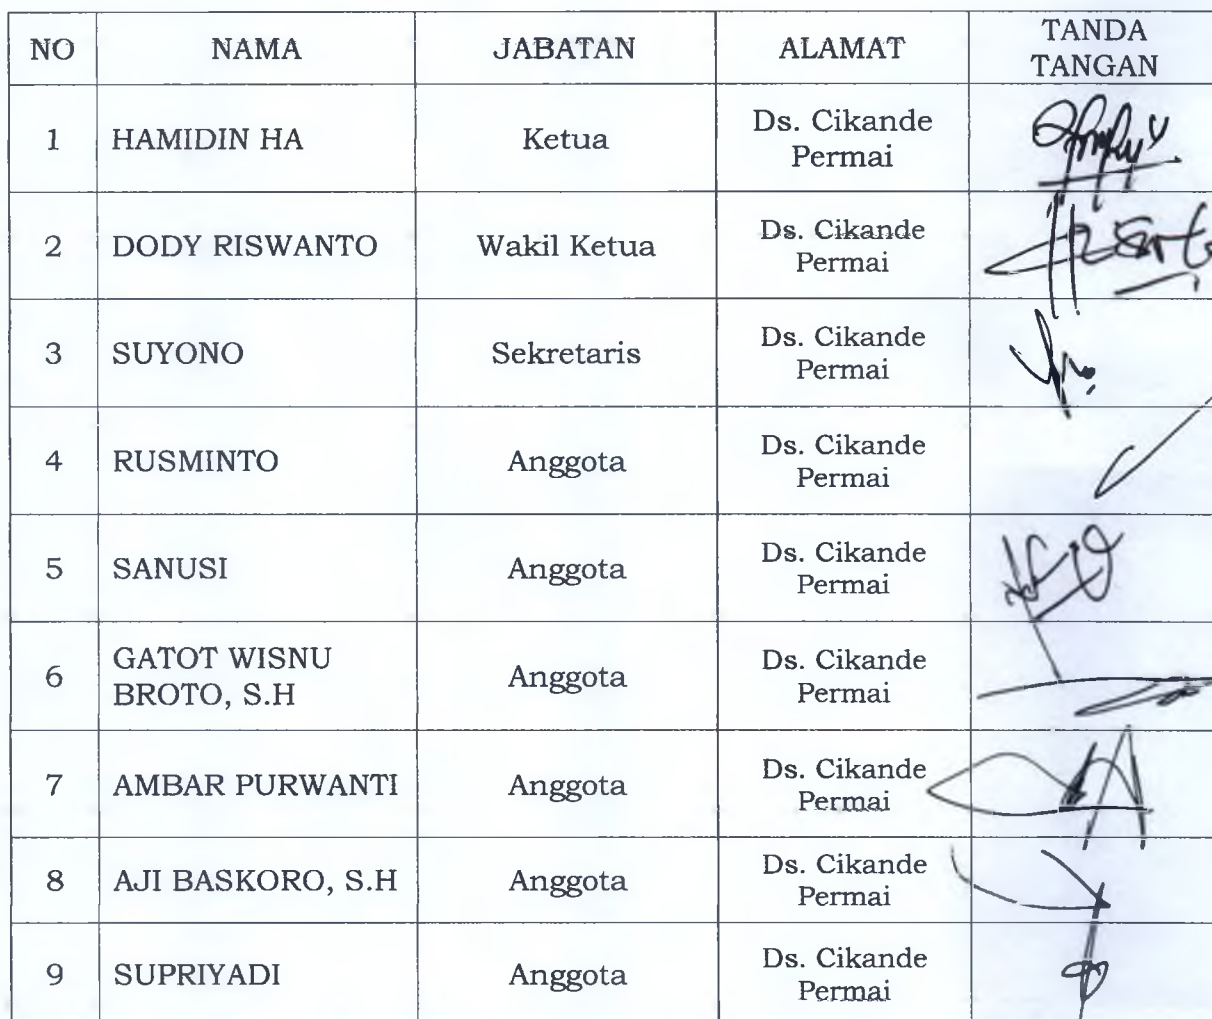 NO NAMA JABATAN ALAMAT TANDA
TANGAN
1 HAMIDIN HA Ketua Ds. Cikande
Permai
2 DODY RISWANTO Wakil Ketua Ds. Cikande
Permai
3 SUYONO Sekretaris Ds. Cikande
Permai
4 RUSMINTO Anggota Ds. Cikande
Permai
5 SANUSI Anggota Ds. Cikande
Permai
6 GATOT WISNU
BROTO, S.H Anggota Ds. Cikande
Permai
7 AMBAR PURWANTI Anggota Ds. Cikande
Permai
8 AJI BASKORO, S.H Anggota Ds. Cikande
Permai
9 SUPRIYADI Anggota Ds. Cikande
Permai